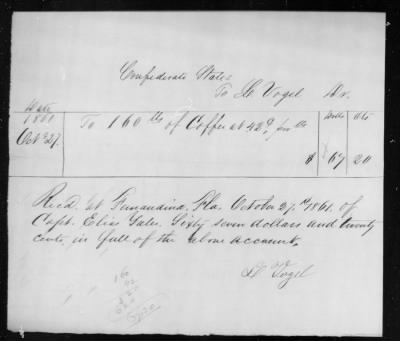 Confederate States
To L Vogel Dr.
Date
Dolls Cts
1861
Octr 27. To 160 lbs of Coffee at 42¢ per lb
$ 67 20
Recd. at Fernandina, Fla. October 27th 1861. of
Capt. Elias Yulee, Sixty seven dollars and twenty
cents, in full of the above account.
L Vogel
160
42
320
640
6720